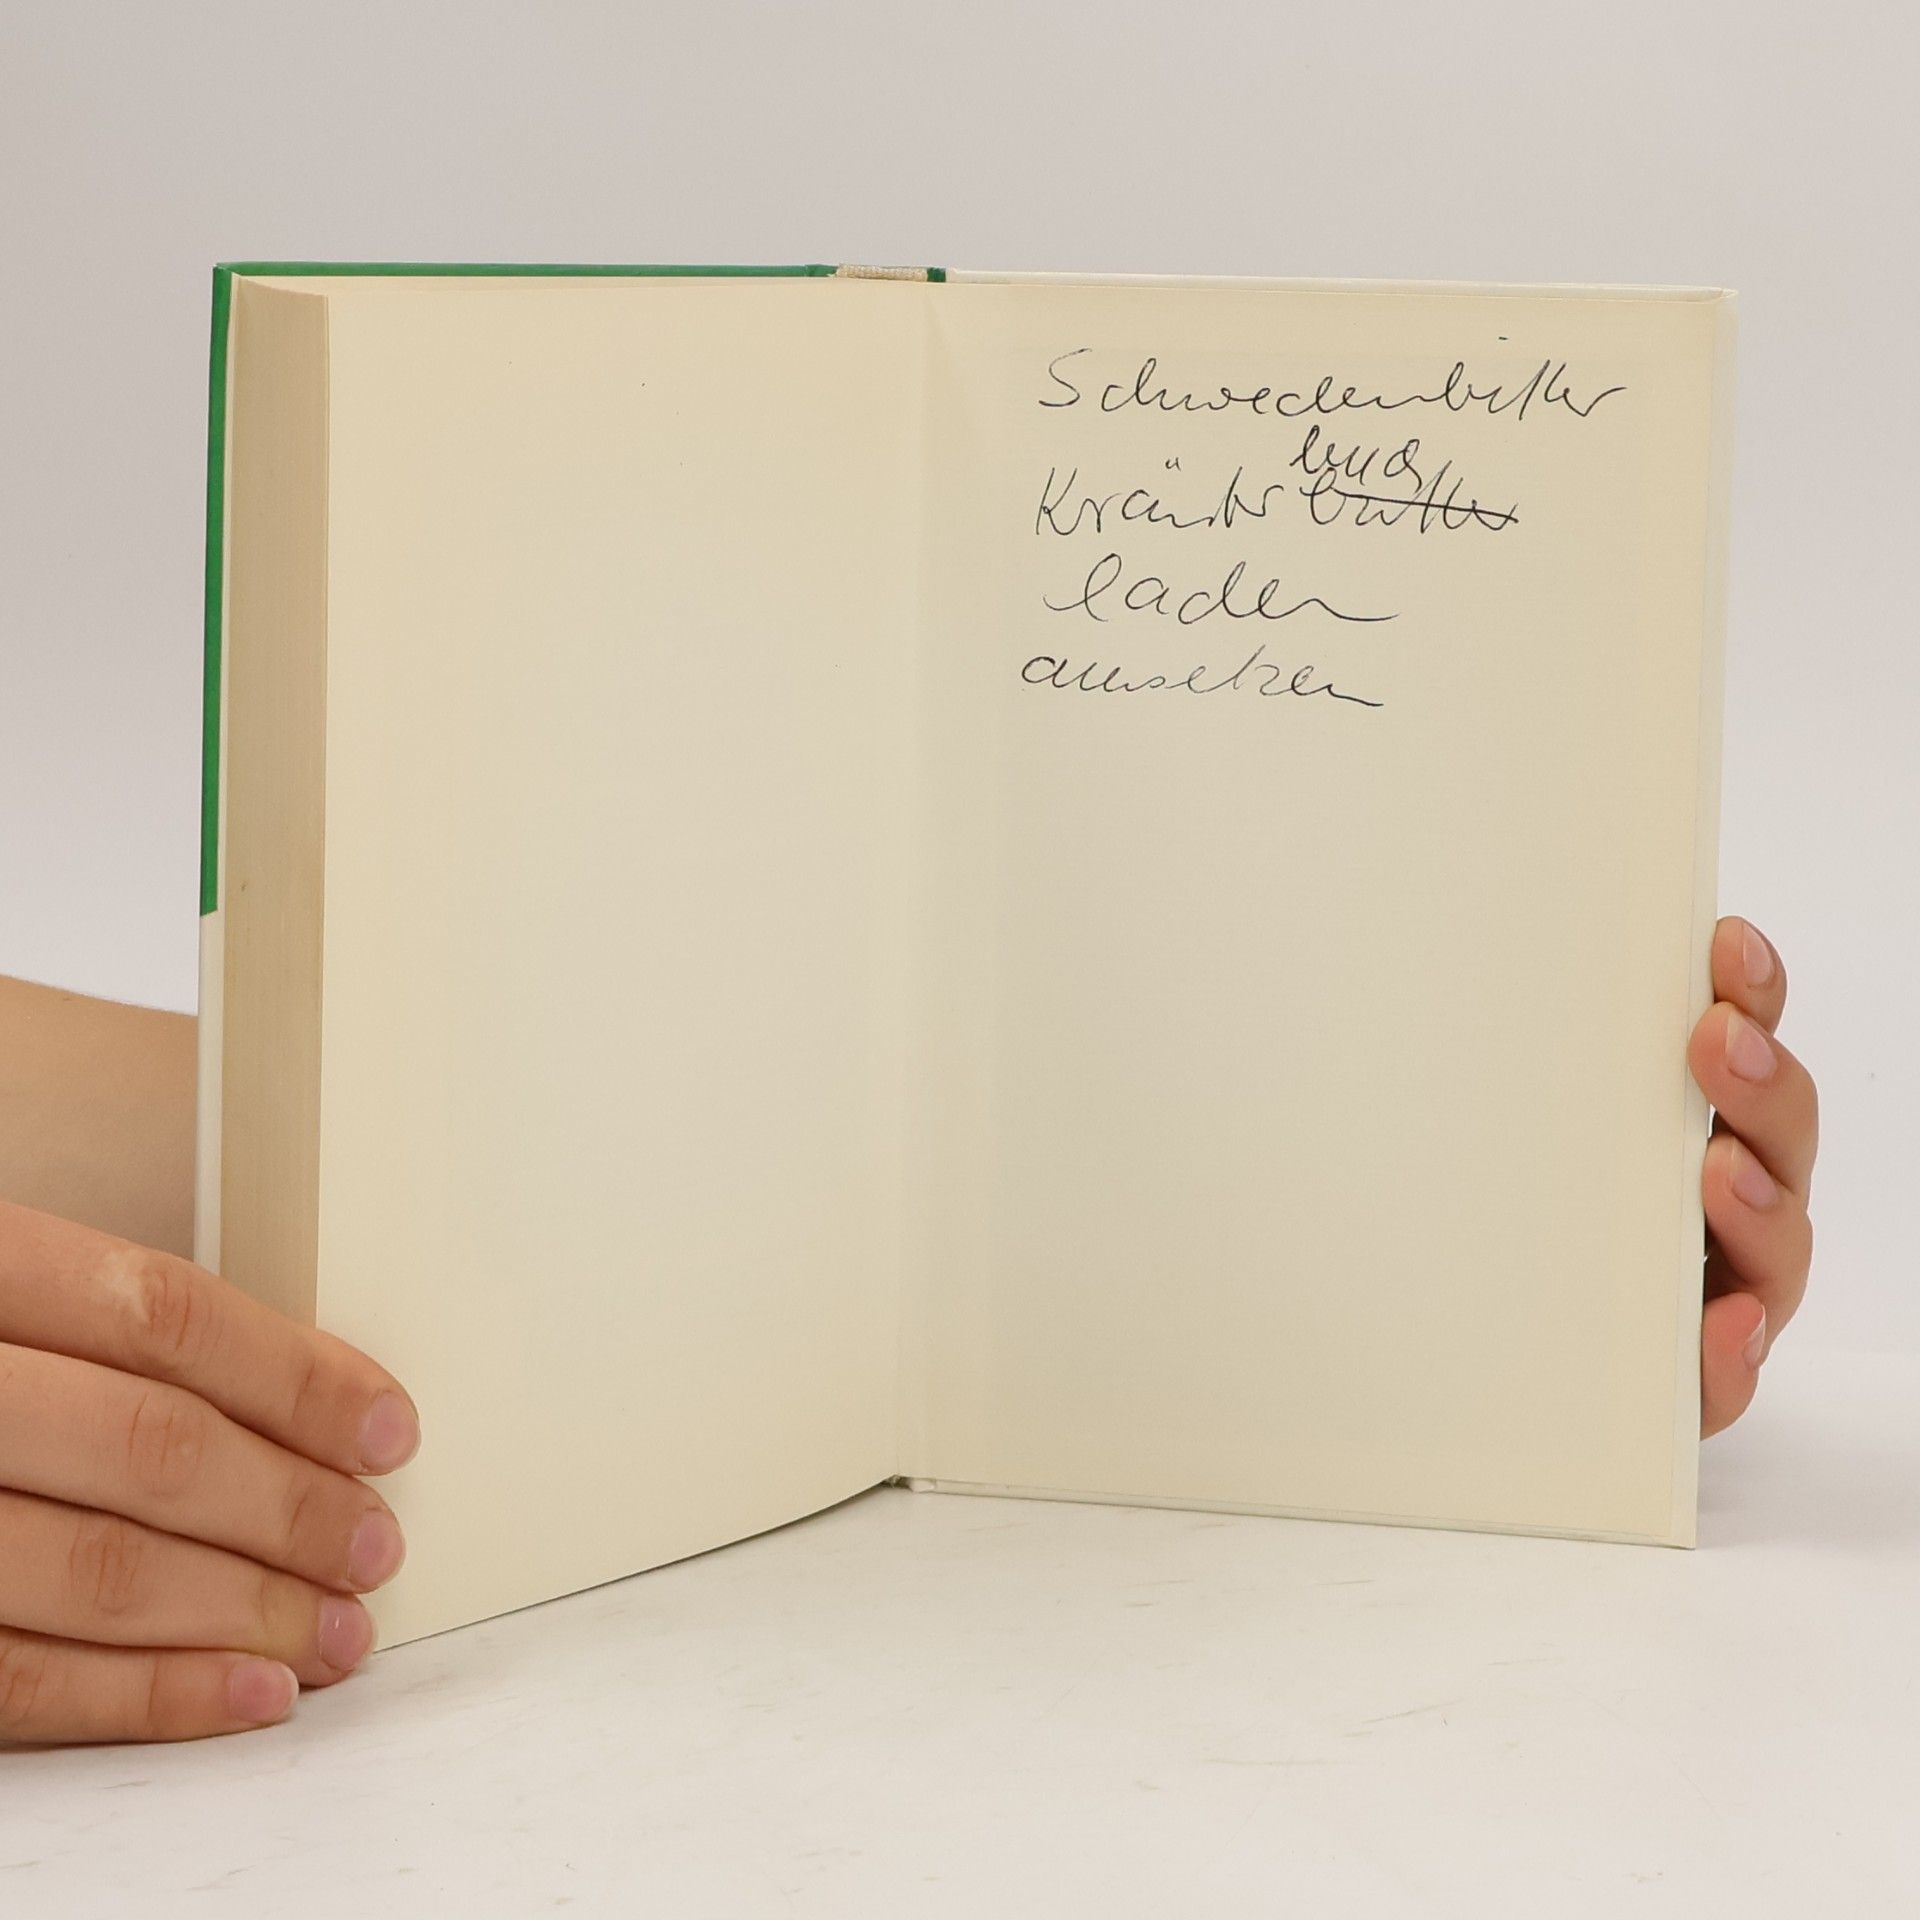 Schwedenbitter
Kräuter bitter
laden
ansetzen